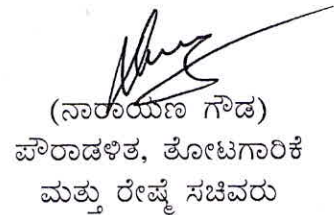 (ನಾರಾಯಣ ಗೌಡ)
ಪೌರಾಡಳಿತ, ತೋಟಗಾರಿಕೆ
ಮತ್ತು ರೇಷ್ಮೆ ಸಚಿವರು